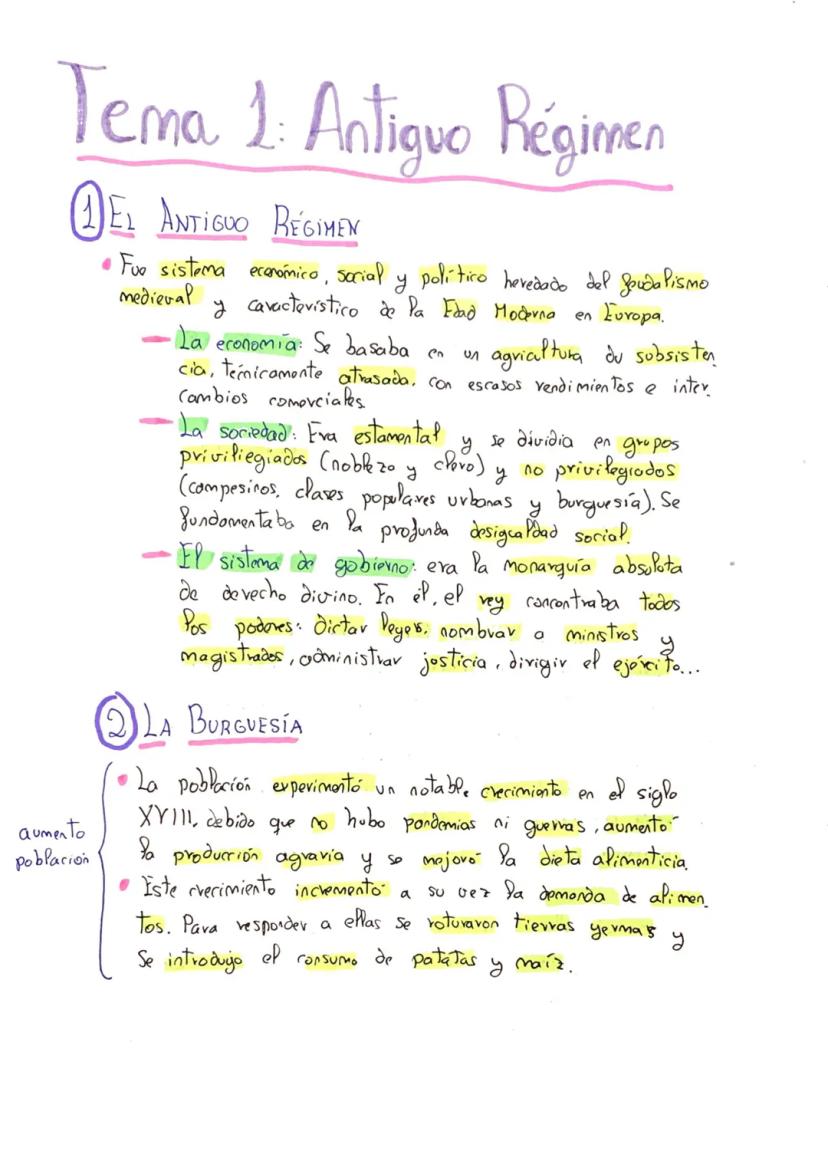 Tema 1: Antiguo Régimen
1 EL ANTIGUO RÉGIMEN
• Fue sistema económico, social y político heredado del feudalismo
medieval y característico de la Edad Moderna en Europa.
— La economía: Se basaba en un agricultura du subsisten
cia, técnicamente atrasada, con escasos rendimientos e inter.
cambios comerciales.
— La sociedad: Era estamental y se dividía en grupos
priviliegiados (nobleza y clero) y no privilegiados
(campesinos, clases populares urbanas y burguesía). Se
fundamentaba en la profunda desigualdad social.
— El sistema de gobierno: era la monarquía absoluta
de derecho divino. En él, el rey concentraba todos
los poderes: dictar leyes, nombrar a ministros y
magistrados, administrar justicia, dirigir el ejército...
2 LA BURGUESÍA
aumento
población
• La población experimentó un notable crecimiento en el siglo
XVIII, debido que no hubo pandemias ni guerras, aumentó
la producción agraria y se mejoró la dieta alimenticia.
• Este crecimiento incrementó a su vez la demanda de alimen.
tos. Para responder a ellas se roturaron tierras yermas y
se introdujo el consumo de patatas y maíz.